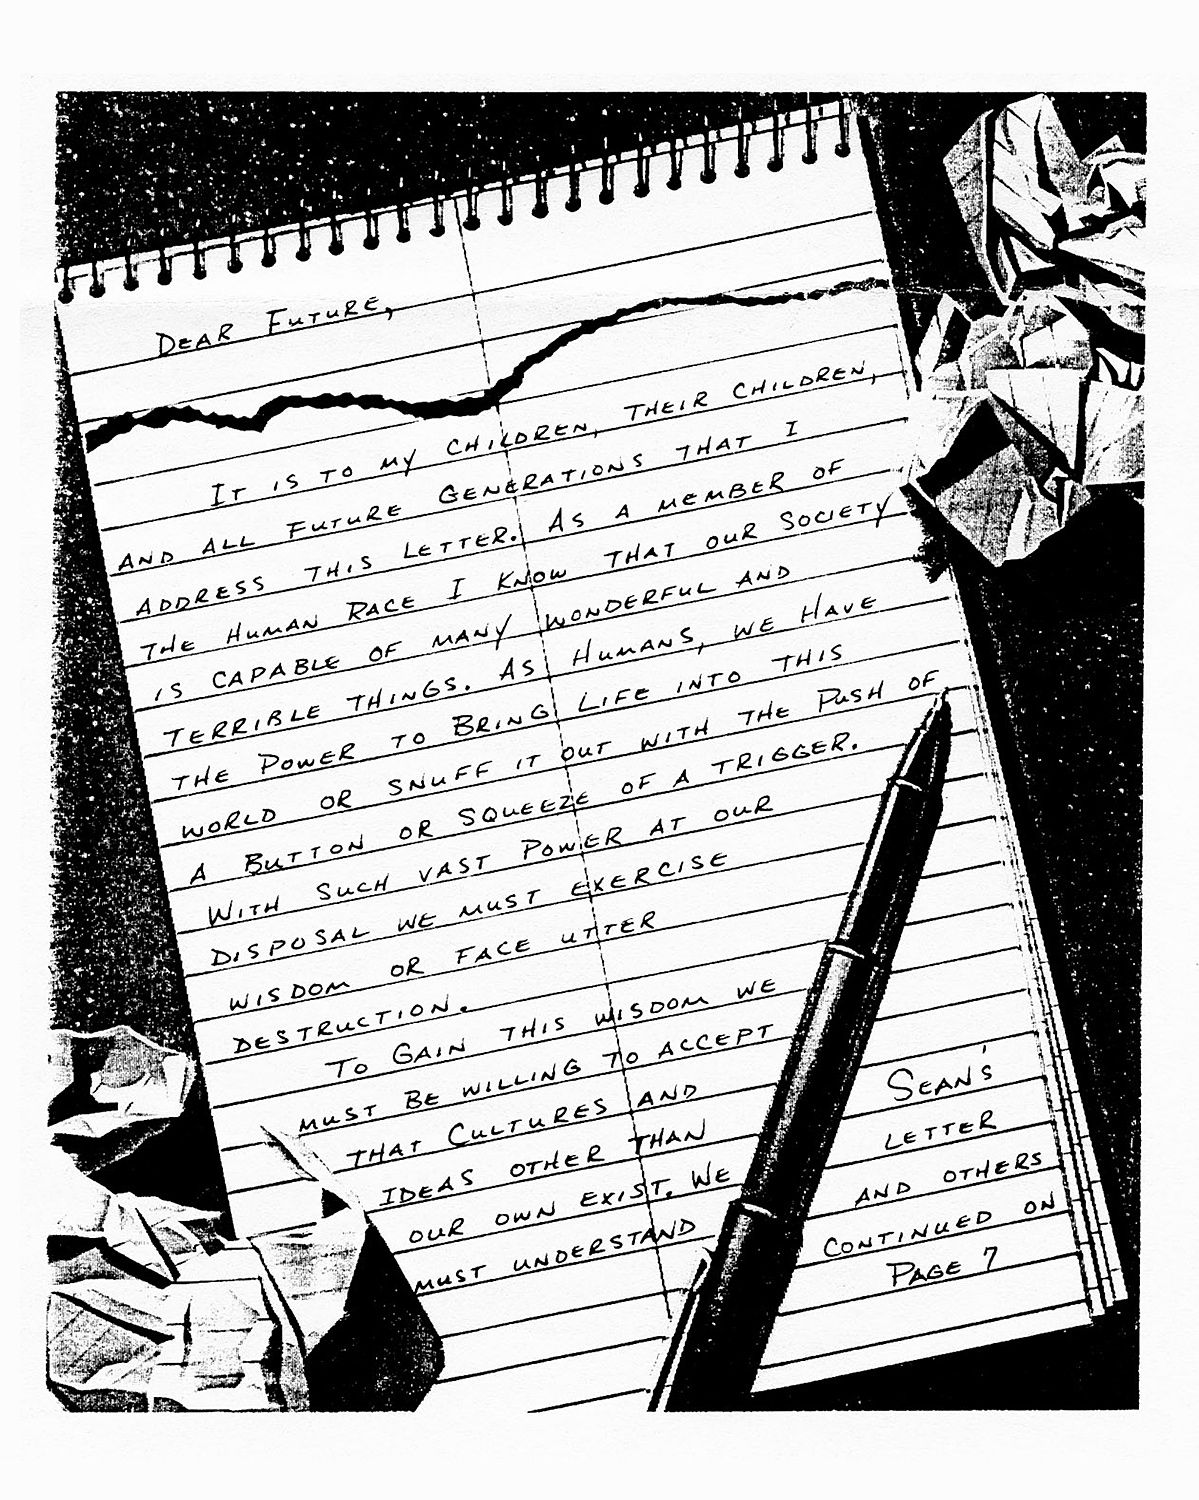 Dear Future,
It is to my children, their children,
and all future generations that I
address this letter. As a member of
the Human Race I know that our society
is capable of many wonderful and
terrible things. As Humans, we Have
the Power to Bring life into this
world or snuff it out with the Push of
a Button or squeeze of a trigger.
With such vast Power at our
disposal we must exercise
wisdom or face utter
destruction.
To Gain this wisdom we
must Be willing to accept
that Cultures and
ideas other than
our own exist. We
must understand
Sean's
letter
and others
continued on
Page 7